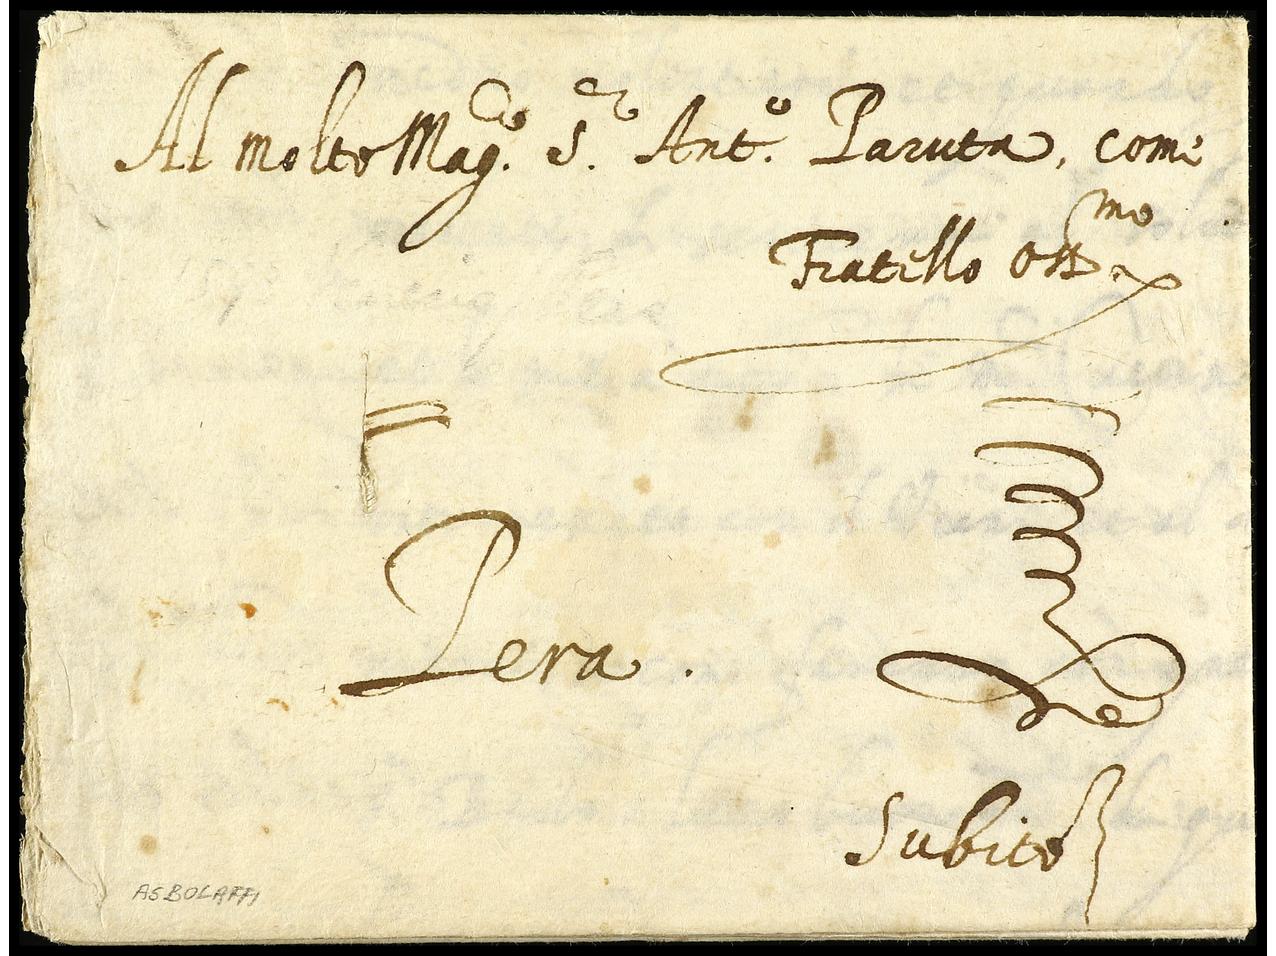 Al molto Mag.co S.r Ant.o Paruta, come
Fratello oss.mo
Pera.
Subito
ASBOLAFFI